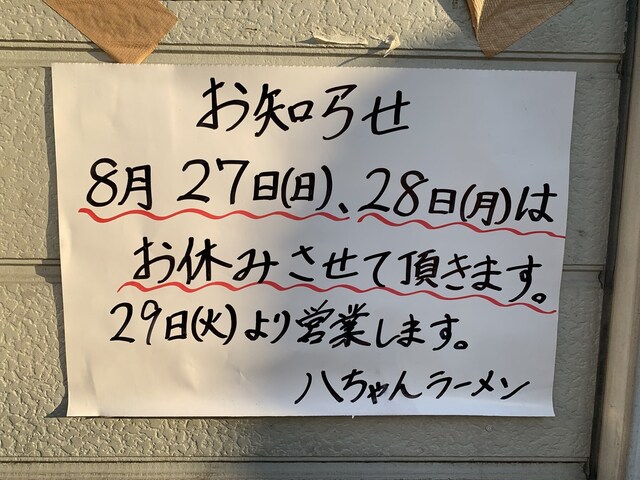 お知らせ
8月27日(日)、28日(月)は
お休みさせて頂きます。
29日(火)より営業します。
八ちゃんラーメン